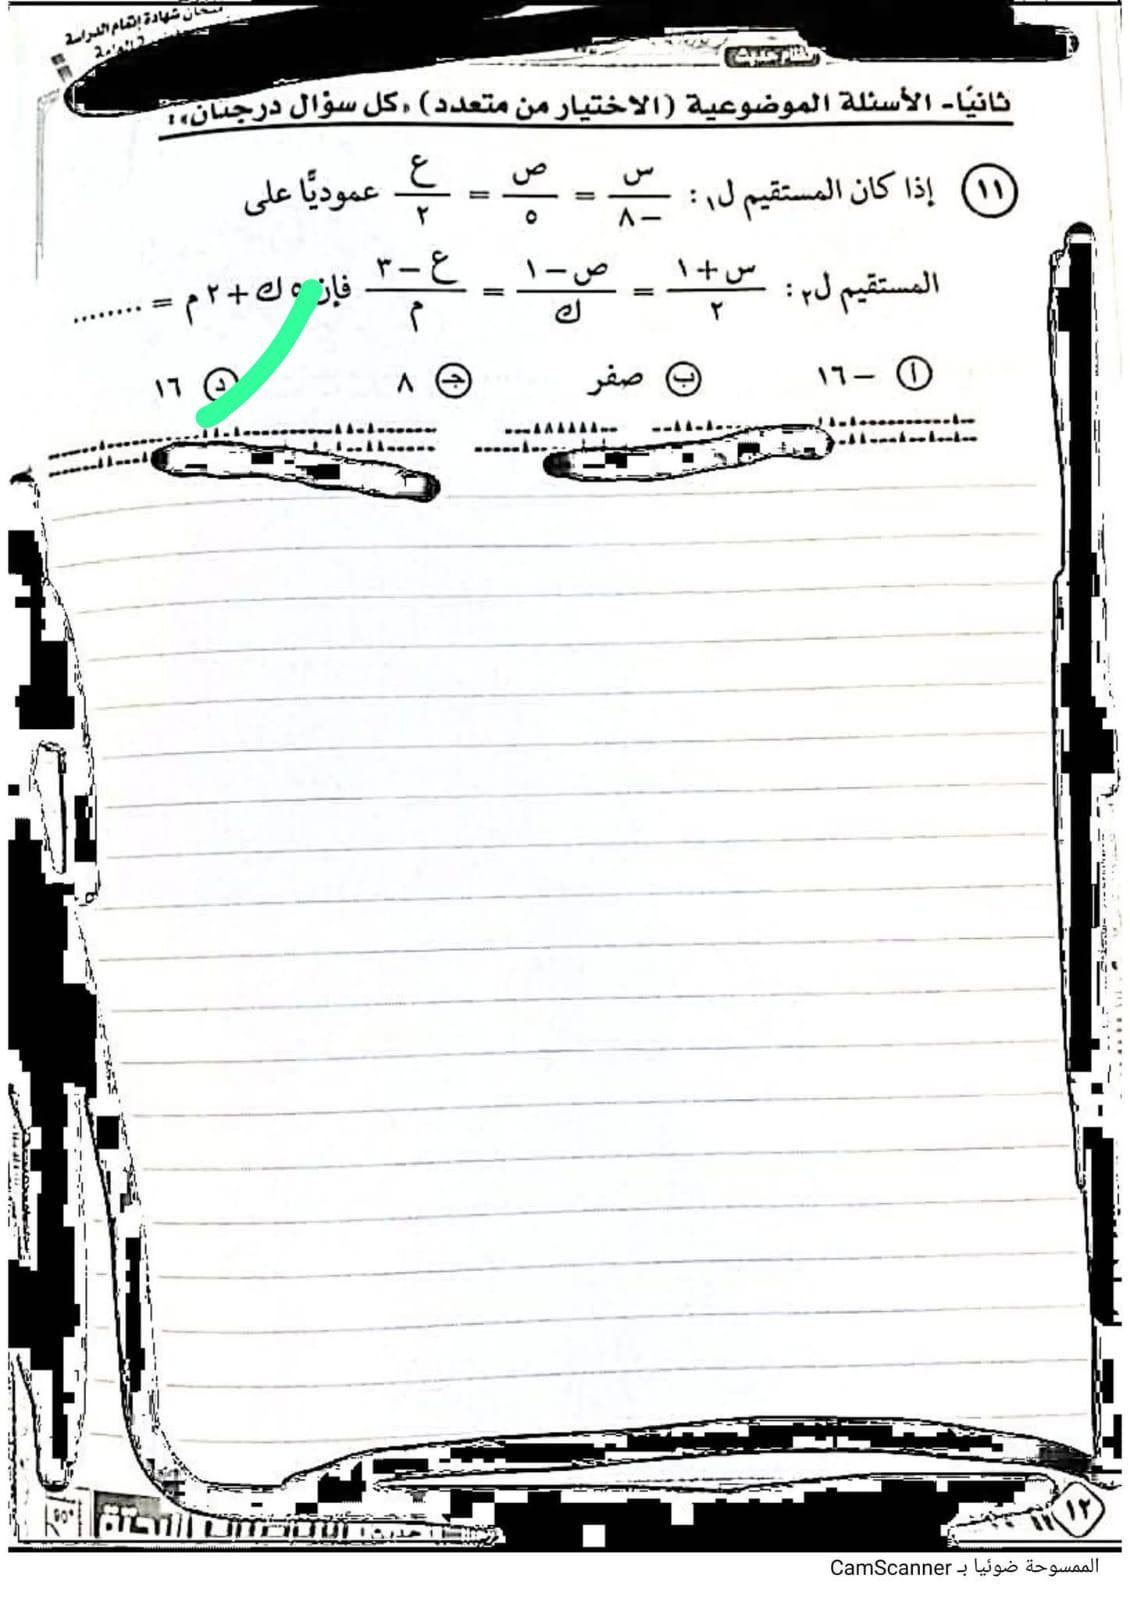 امتحان شهادة إتمام الدراسة
نظام حديث
ثانيًا- الأسئلة الموضوعية (الاختيار من متعدد) «كل سؤال درجتان»:
١١ إذا كان المستقيم ل١: س/-٨ = ص/٥ = ع/٢ عموديًّا على
المستقيم ل٢: س+١/٢ = ص-١/ك = ع-٣/م فإن ٥ك+٢م = ........
أ -١٦ ب صفر جـ ٨ د ١٦
١٢
الممسوحة ضوئيا بـ CamScanner